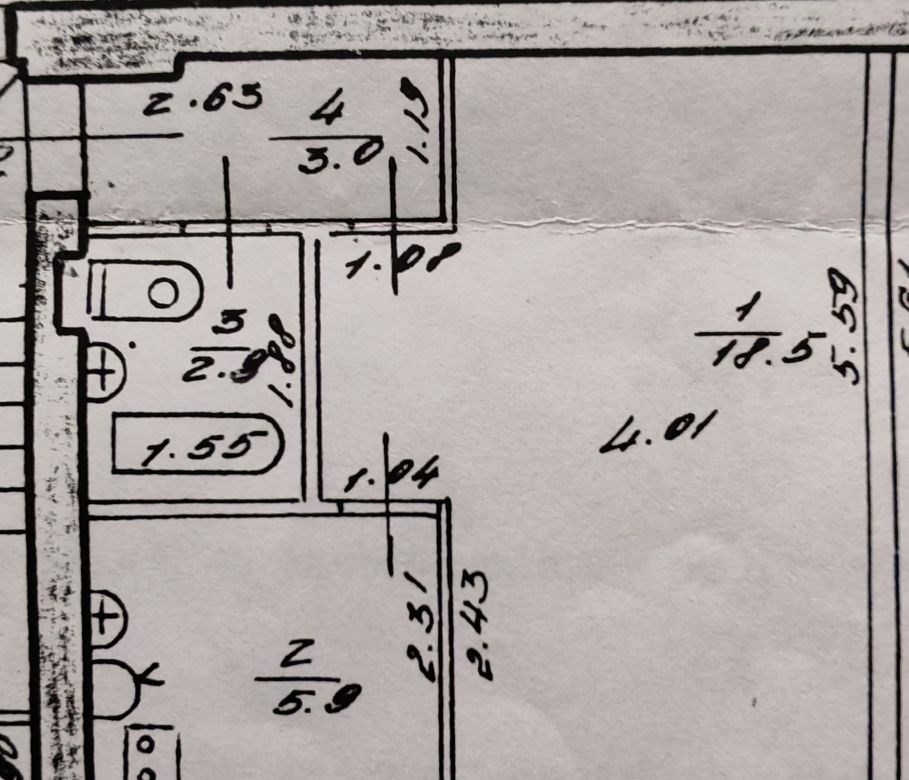 2.63
4
3.0
1.19
1.08
3
2.9
1.88
1
18.5
5.59
1.55
4.01
1.04
2.31
2.43
2
5.9